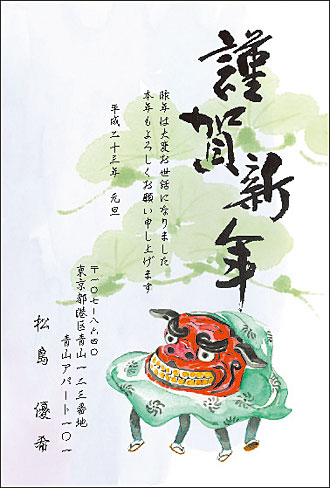 謹賀新年
昨年は大変お世話になりました
本年もよろしくお願い申し上げます
平成二十三年　元旦
〒一〇七-八六四〇
東京都港区青山一二三番地
青山アパート一〇一
松島　優希